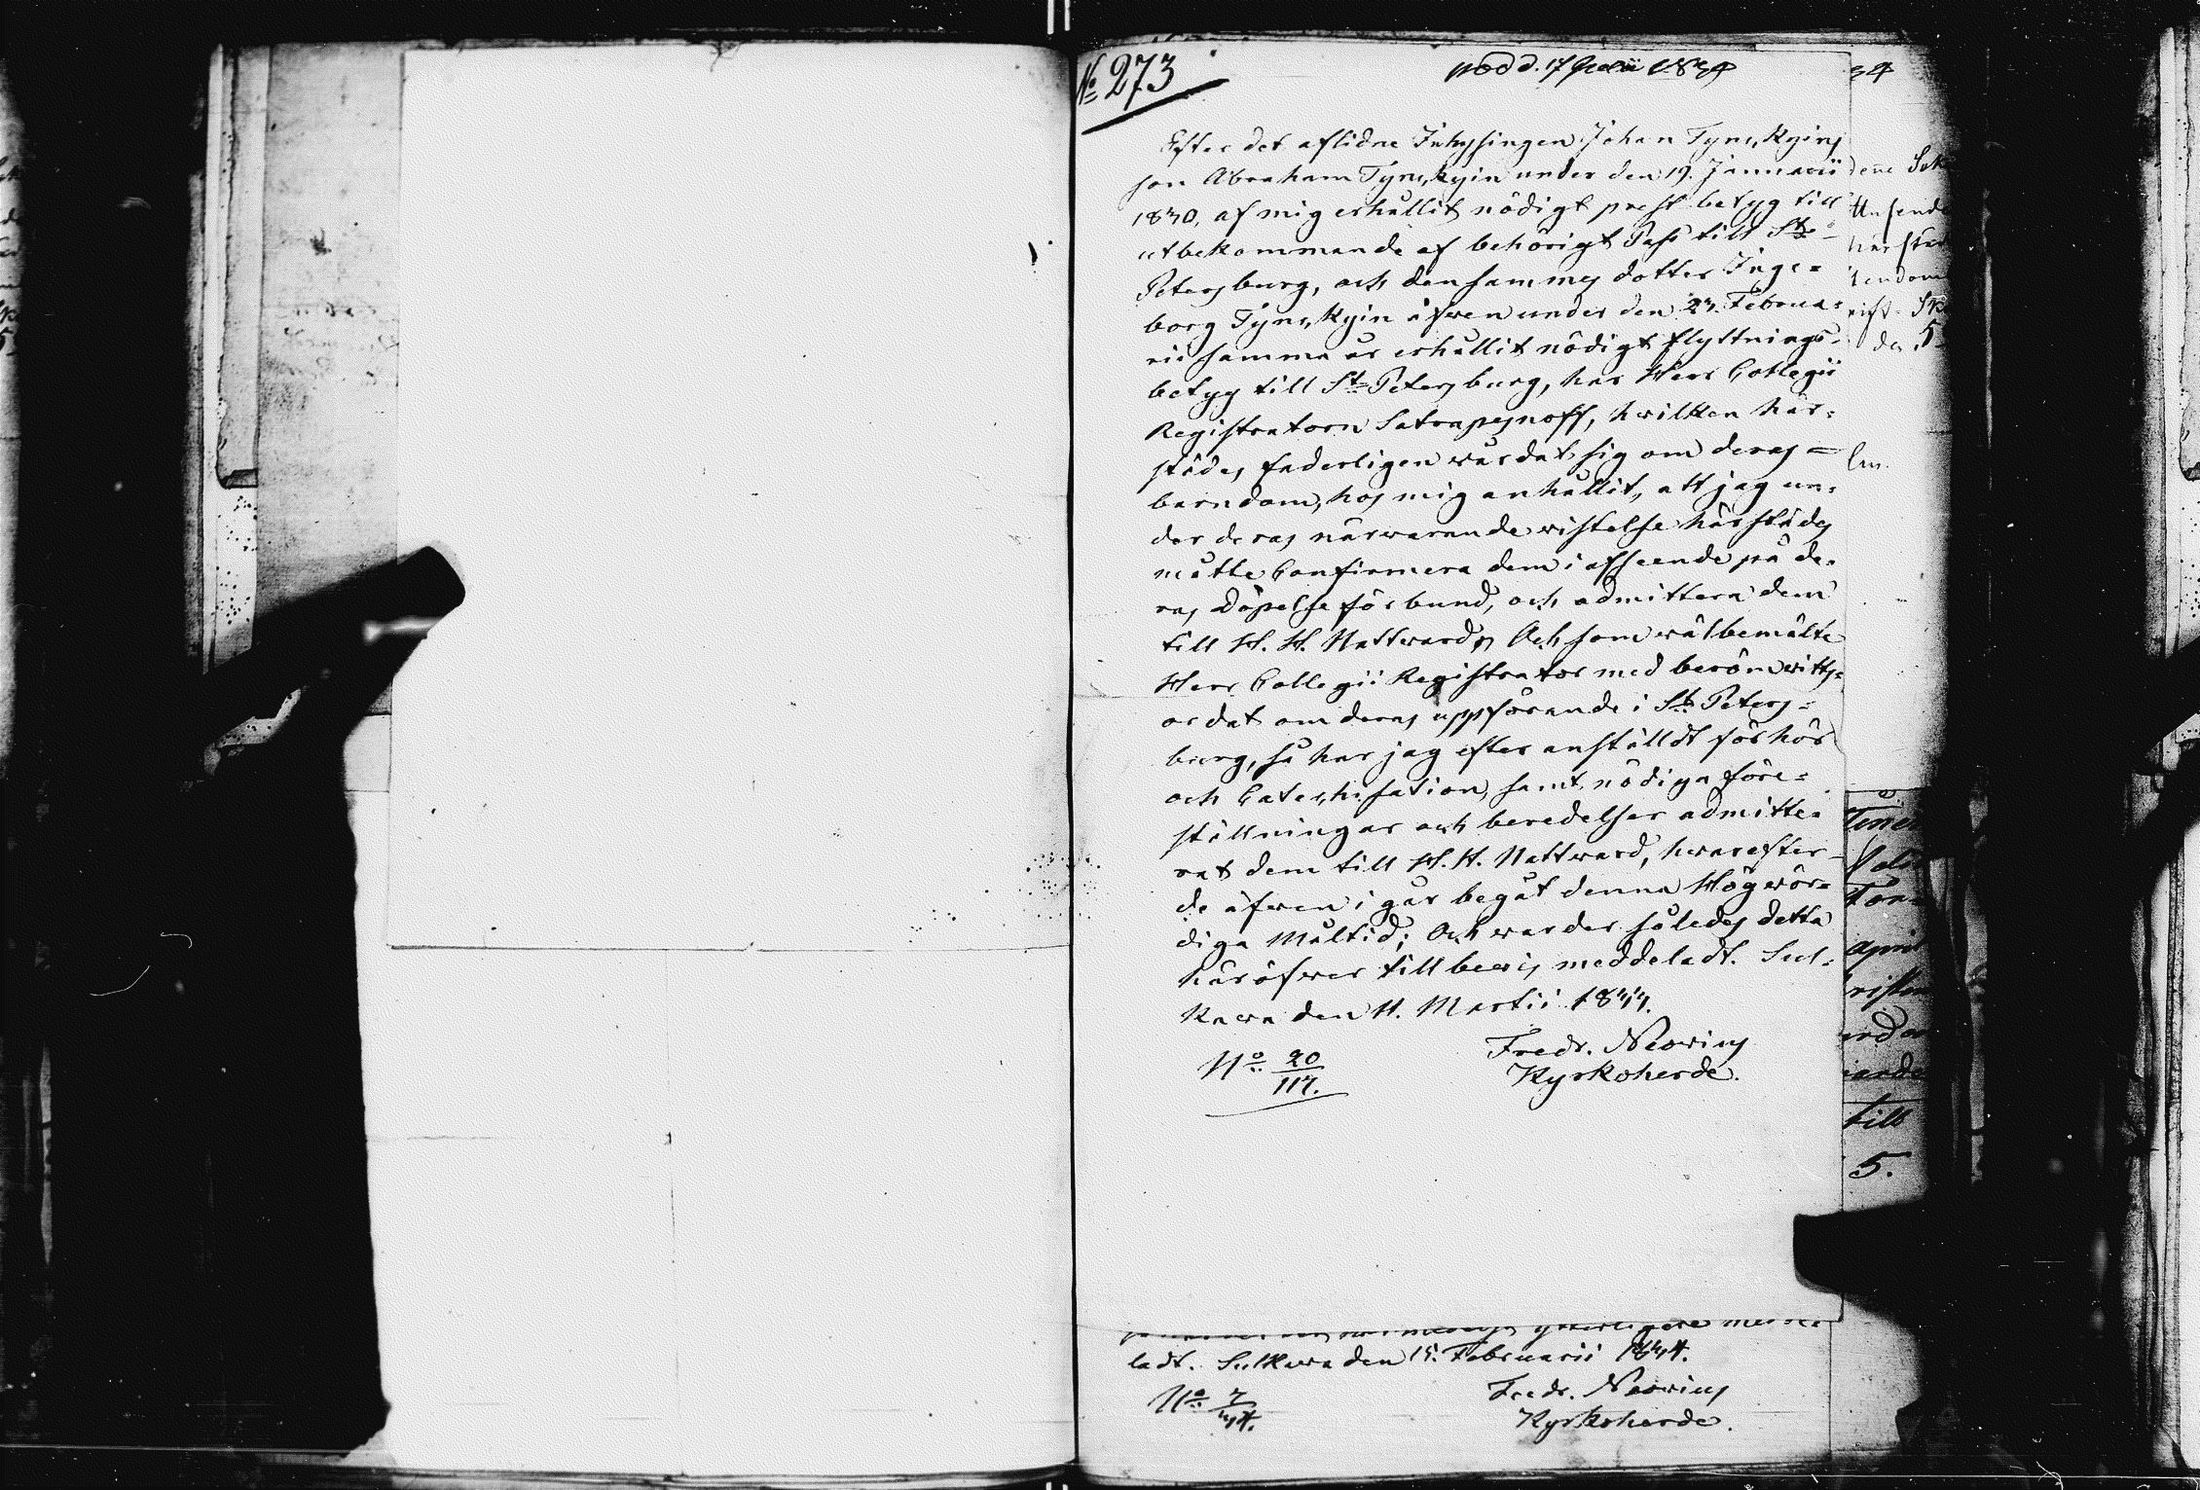 № 273
prod d. 17 Julii 1834
Efter det aflidne Inhysingen Johan Tynskyins
son Abraham Tynskyin under den 19. Januarii
1830, af mig erhållit nödigt prest betyg till
utbekommande af behörigt Pass till St=
Petersburg, och densammes dotter Inge=
borg Tynskyin äfwen under den 23. Februa=
rii samma år erhållit nödigt flyttnings=
betyg till St= Petersburg, har Herr Collegii
Registratorn Satrapesnoff, hwilken här=
städes faderligen wårdat sig om deras =
barndom, hos mig anhållit, att jag un=
der deras närwarande wistelse härstädes
måtte Confirmera dem i afseende på de=
ras Döpelseförbund, och admittera dem
till H. H. Nattward; Och som wälbemälte
Herr Collegii Registrator med beröm witts=
ordat om deras uppförande i St. Peters=
burg, så har jag efter anställdt förhör
och Catechisation, samt nödiga före=
ställningar och beredelser admitte=
rat dem till H. H. Nattward, hwarefter
de äfwen i går begåt denna Högwör=
diga Måltid; Och warder således detta
häröfwer till bewis meddeladt. Sul=
kawa den 11. Martii 1834.
Fredr. Neovius
Kyrkoherde.
N° 20
117.
ladt. Sulkawa den 15. Februarii 1834.
Fredr. Neovius
Kyrkoherde.
N° 7
34.
till
5.